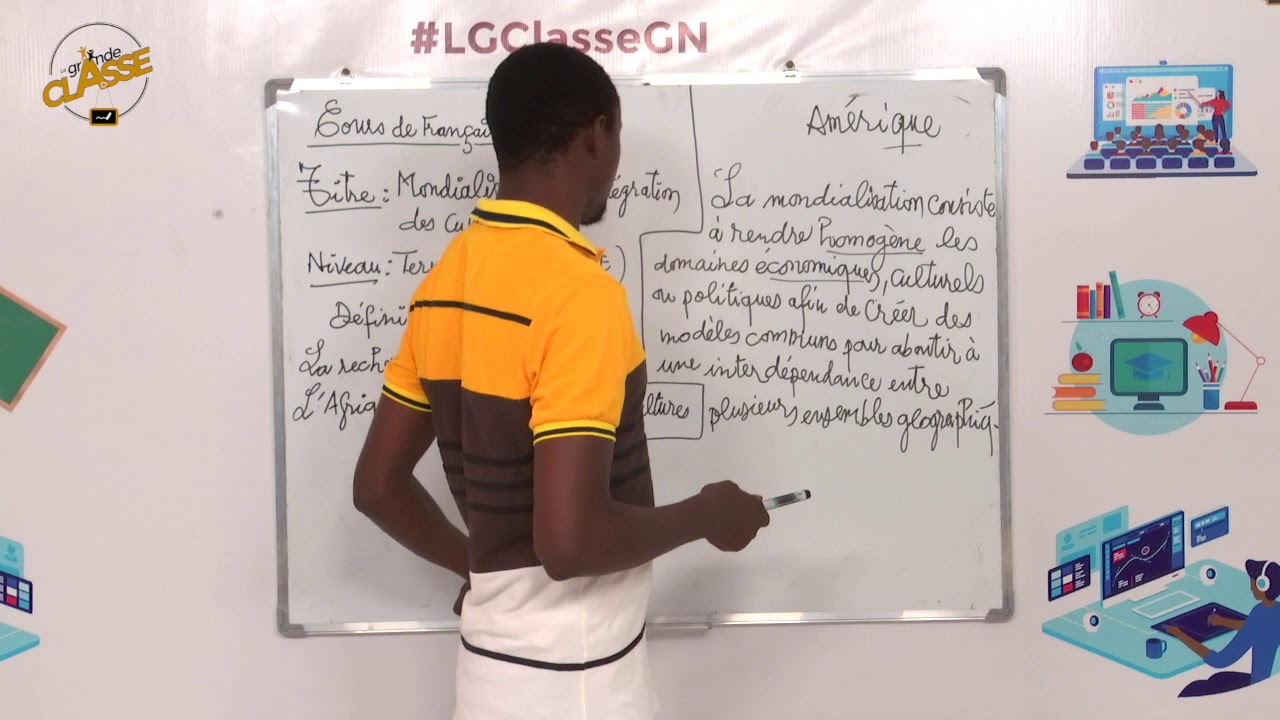 #LGClasseGN
la grande
CLASSE
Cours de Françai
Titre: Mondialis tégration
des Cu
Niveau: Ter )
Défini
La rech
L'Afriq ltures
Amérique
La mondialisation consiste
à rendre homogène les
domaines économiques, culturels
ou politiques afin de créer des
modèles communs pour aboutir à
une interdépendance entre
plusieurs ensembles géographiq.